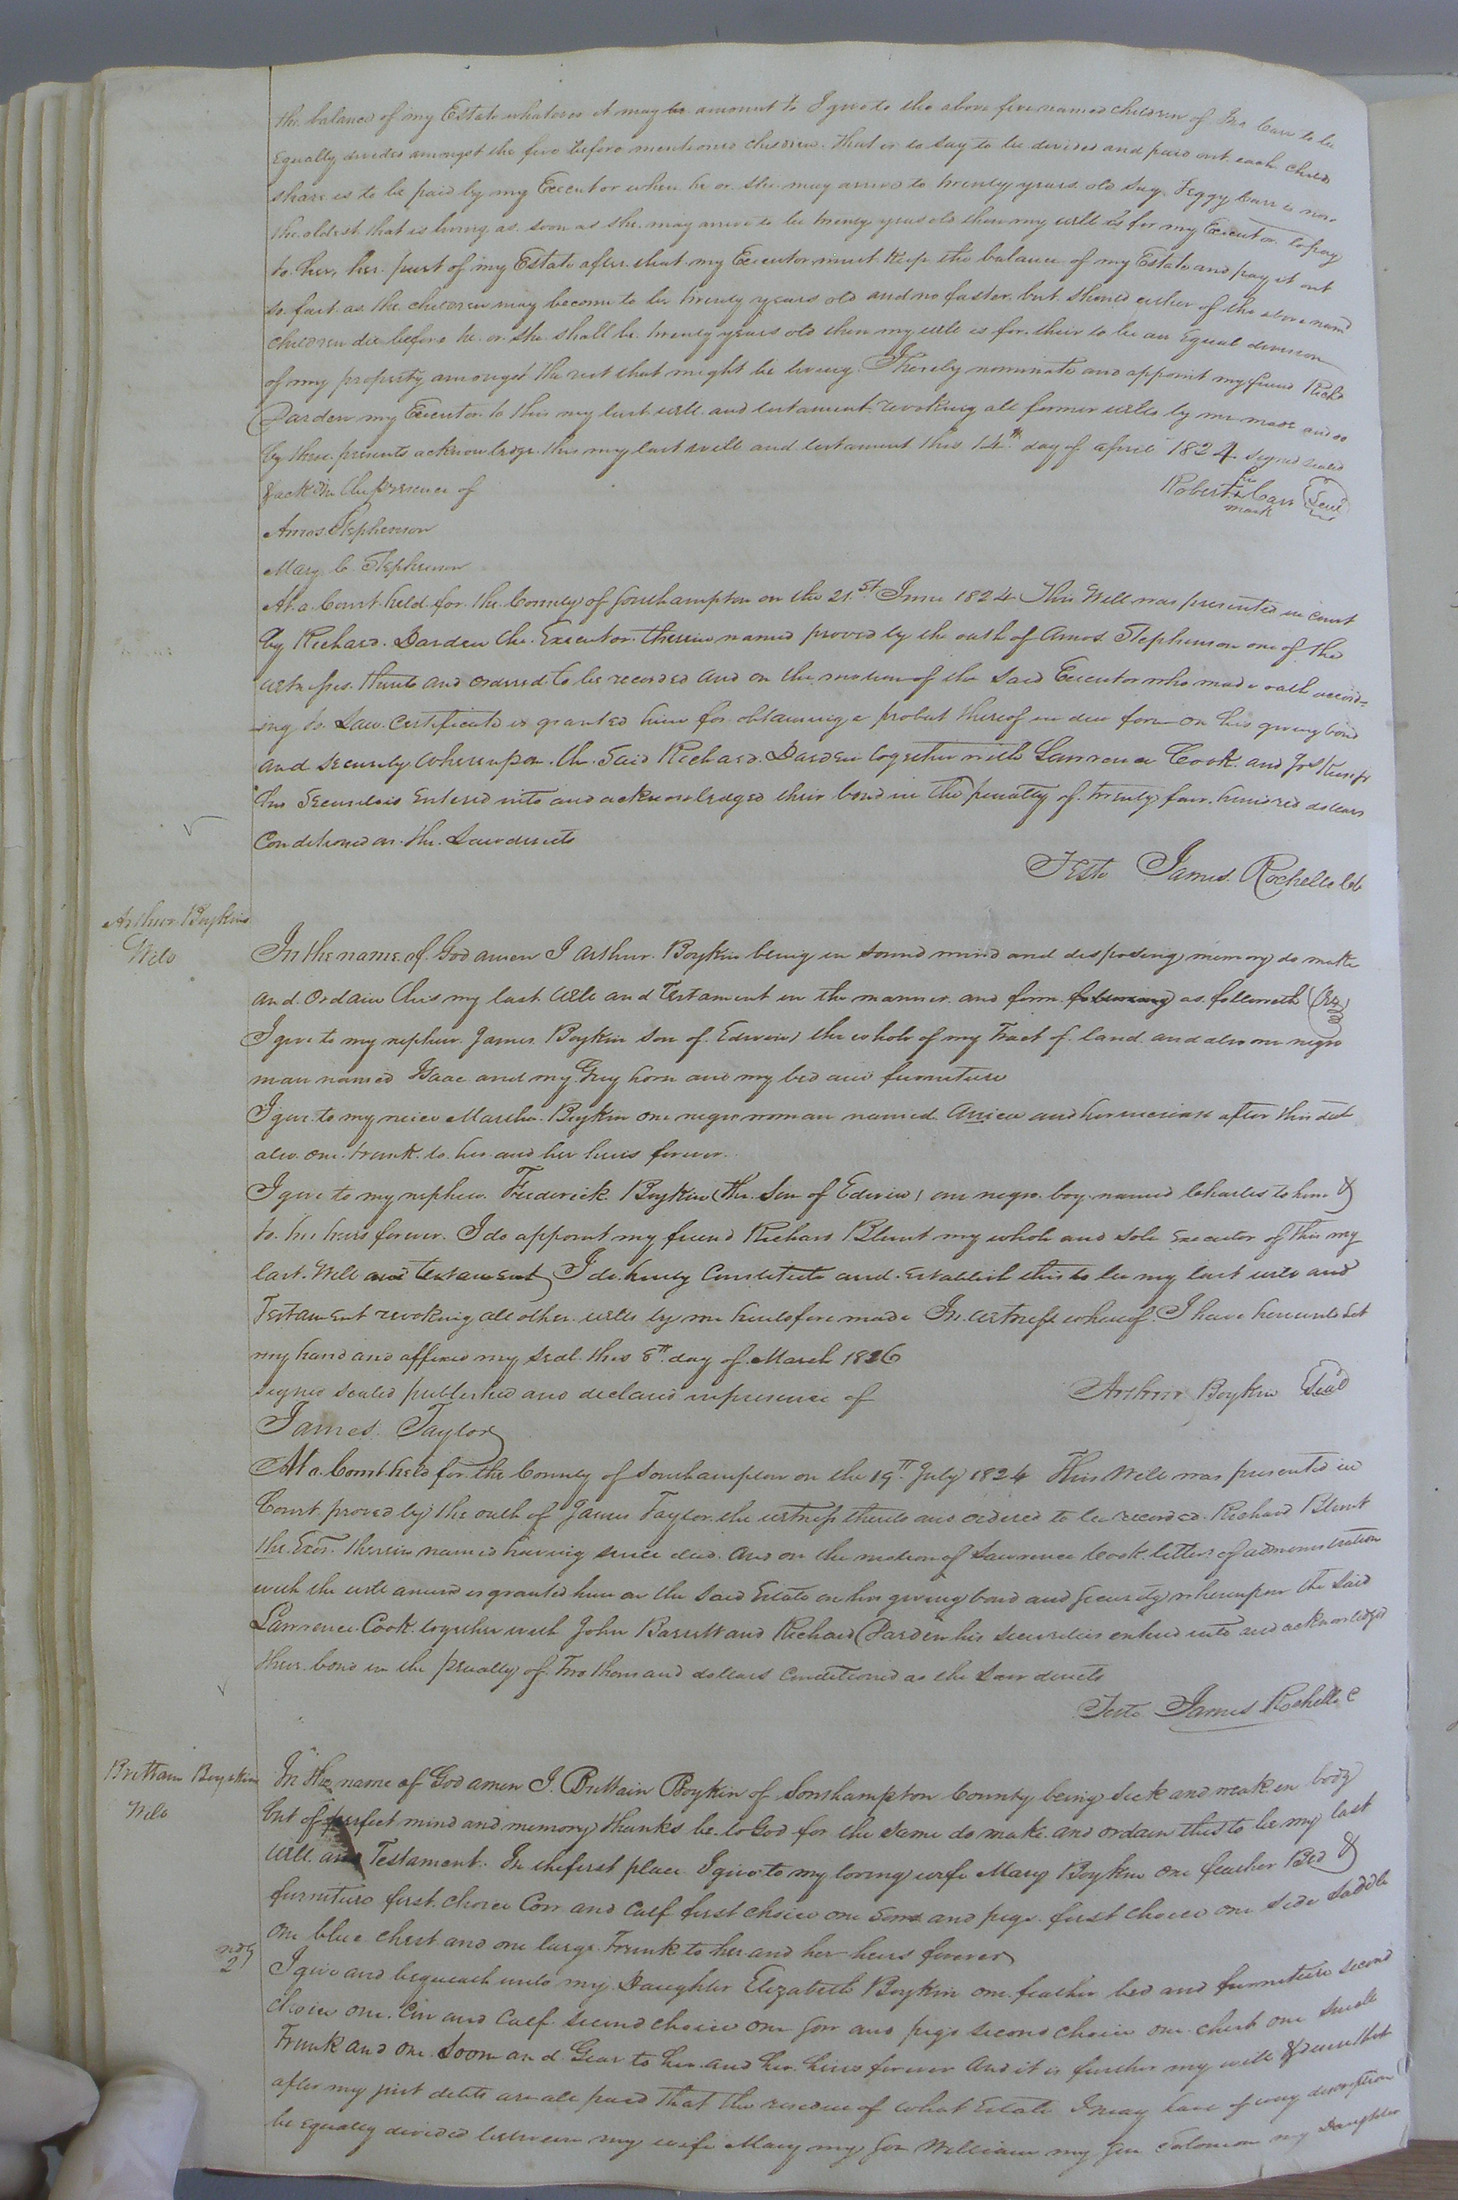 the balance of my Estate whatever it may be amount to I give to the above five named children of Jno Carr to be
Equally divided amongst the five before mentioned children. that is to say to be divided and paid out each child
share is to be paid by my Executor when he or she may arrive to twenty years old say Peggy Carr is now
the oldest that is living as soon as she may arrive to be twenty years old then my will is for my Executor to pay
to her, her part of my Estate after that my Executor must keep the balance of my Estate and pay it out
so fast as the children may become to be twenty years old and no faster but should either of the above named
children die before he or she shall be twenty years old then my will is for their to be an Equal division
of my property amongst the rest that might be living. I hereby nominate and appoint my friend Richd
Darden my Executor to this my last will and testament revoking all former wills by me made and do
by these presents acknowledge this my last will and testament this 14th day of april 1824 signed sealed
& ack in the presence of
Robert his mark Carr Seal
Amos Stephenson
Mary C Stephenson
At a Court held for the County of Southampton on the 21st June 1824 This Will was presented in court
by Richard Darden the Executor therein named proved by the oath of Amos Stephenson one of the
witnesses thereto and ordered to be recorded and on the motion of the said Executor who made oath accord-
ing to Law certificate is granted him for obtaining a probat thereof in due form on his giving bond
and security whereupon the said Richard Darden together with Lawrence Cook and
his securities Entered into and acknowledged their bond in the penalty of twenty four hundred dollars
Conditioned as the Law directs
Teste James Rochelle Clk
Arthur Boykins
Will
In the name of God amen I Arthur Boykin being in sound mind and desposing memory do make
and Ordain this my last Will and Testament in the manner and form following as followeth
I give to my nephew James Boykin son of Edwin the whole of my Tract of land and also one negro
man named Isaac and my Grey horse and my bed and furniture
I give to my neice Martha Boykin one negro woman named and her increase after this date
also one trunk to her and her heirs forever.
I give to my nephew Frederick Boykin (the Son of Edwin) one negro boy named Charles to him &
to his heirs forever. I do appoint my friend Richard Blunt my whole and sole Executor of this my
last Will and testament I do hereby Constitute and establish this to be my last will and
Testament revoking all other wills by me heretofore made In witness whereof I have hereunto set
my hand and affixed my seal this 8th day of March 1826
signed sealed published and declared in presence of
Arthur Boykin Seal
James Taylor
At a Court held for the County of Southampton on the 19th July 1824 This Will was presented in
Court proved by the oath of James Taylor the witness thereto and ordered to be recorded Richard Blunt
the Exor. therein named having since died. and on the motion of Lawrence Cook letters of administration
with the will annexed is granted him on the said Estate on his giving bond and security whereupon the said
Lawrence Cook together with John Barrett and Richard Darden his securities entered into and acknowledged
their bond in the penalty of Two thousand dollars Conditioned as the Law directs
Teste James Rochelle C
Brittain Boykin
Will
In the name of God amen I Brittain Boykin of Southampton County being sick and weak in body
but of perfect mind and memory thanks be to God for the same do make and ordain this to be my last
will and Testament. In the first place I give to my loving wife Mary Boykin one feather Bed &
furniture first choice Cow and Calf first choice one Sow and pigs first choice one side saddle
one blue chest and one large Trunk to her and her heirs forever
2ndly
I give and bequeath unto my Daughter Elizabeth Boykin one feather bed and furniture second
choice one Cow and Calf second choice one Sow and pigs second choice one chest one small
Trunk and one Loom and Gear to her and her heirs forever And it is further my will & that
after my just debts are all paid that the residue of what Estate I may have of every description
be equally divided between my wife Mary my Son William my Son Solomon my Daughter